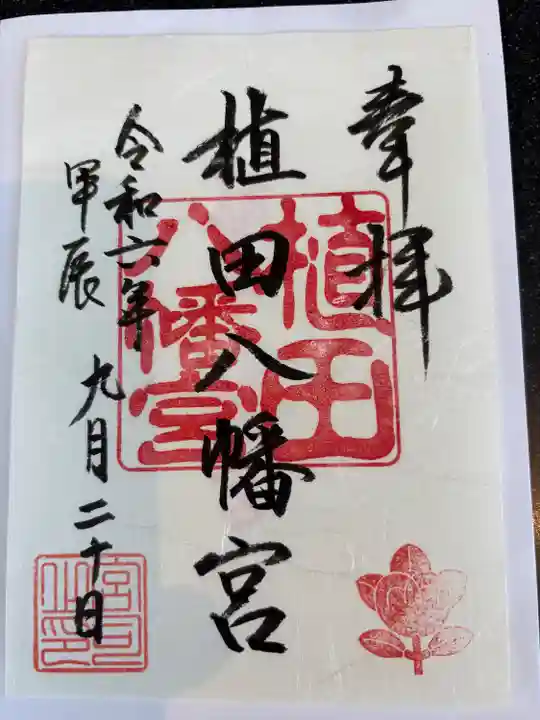 奉拝
植田八幡宮
令和六年
甲辰
九月二十日
植田
八幡宮
宮司之印